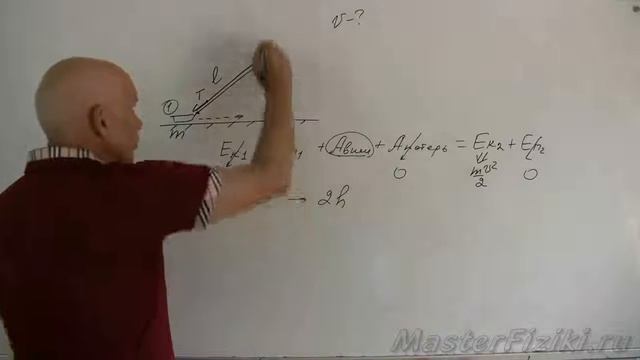 v-?
l
T
①
m
Eк₁ + Aвнеш + Aпотерь = Eк₂ + Eр₂
0 mv²/2 0
→ 2h
MasterFiziki.ru